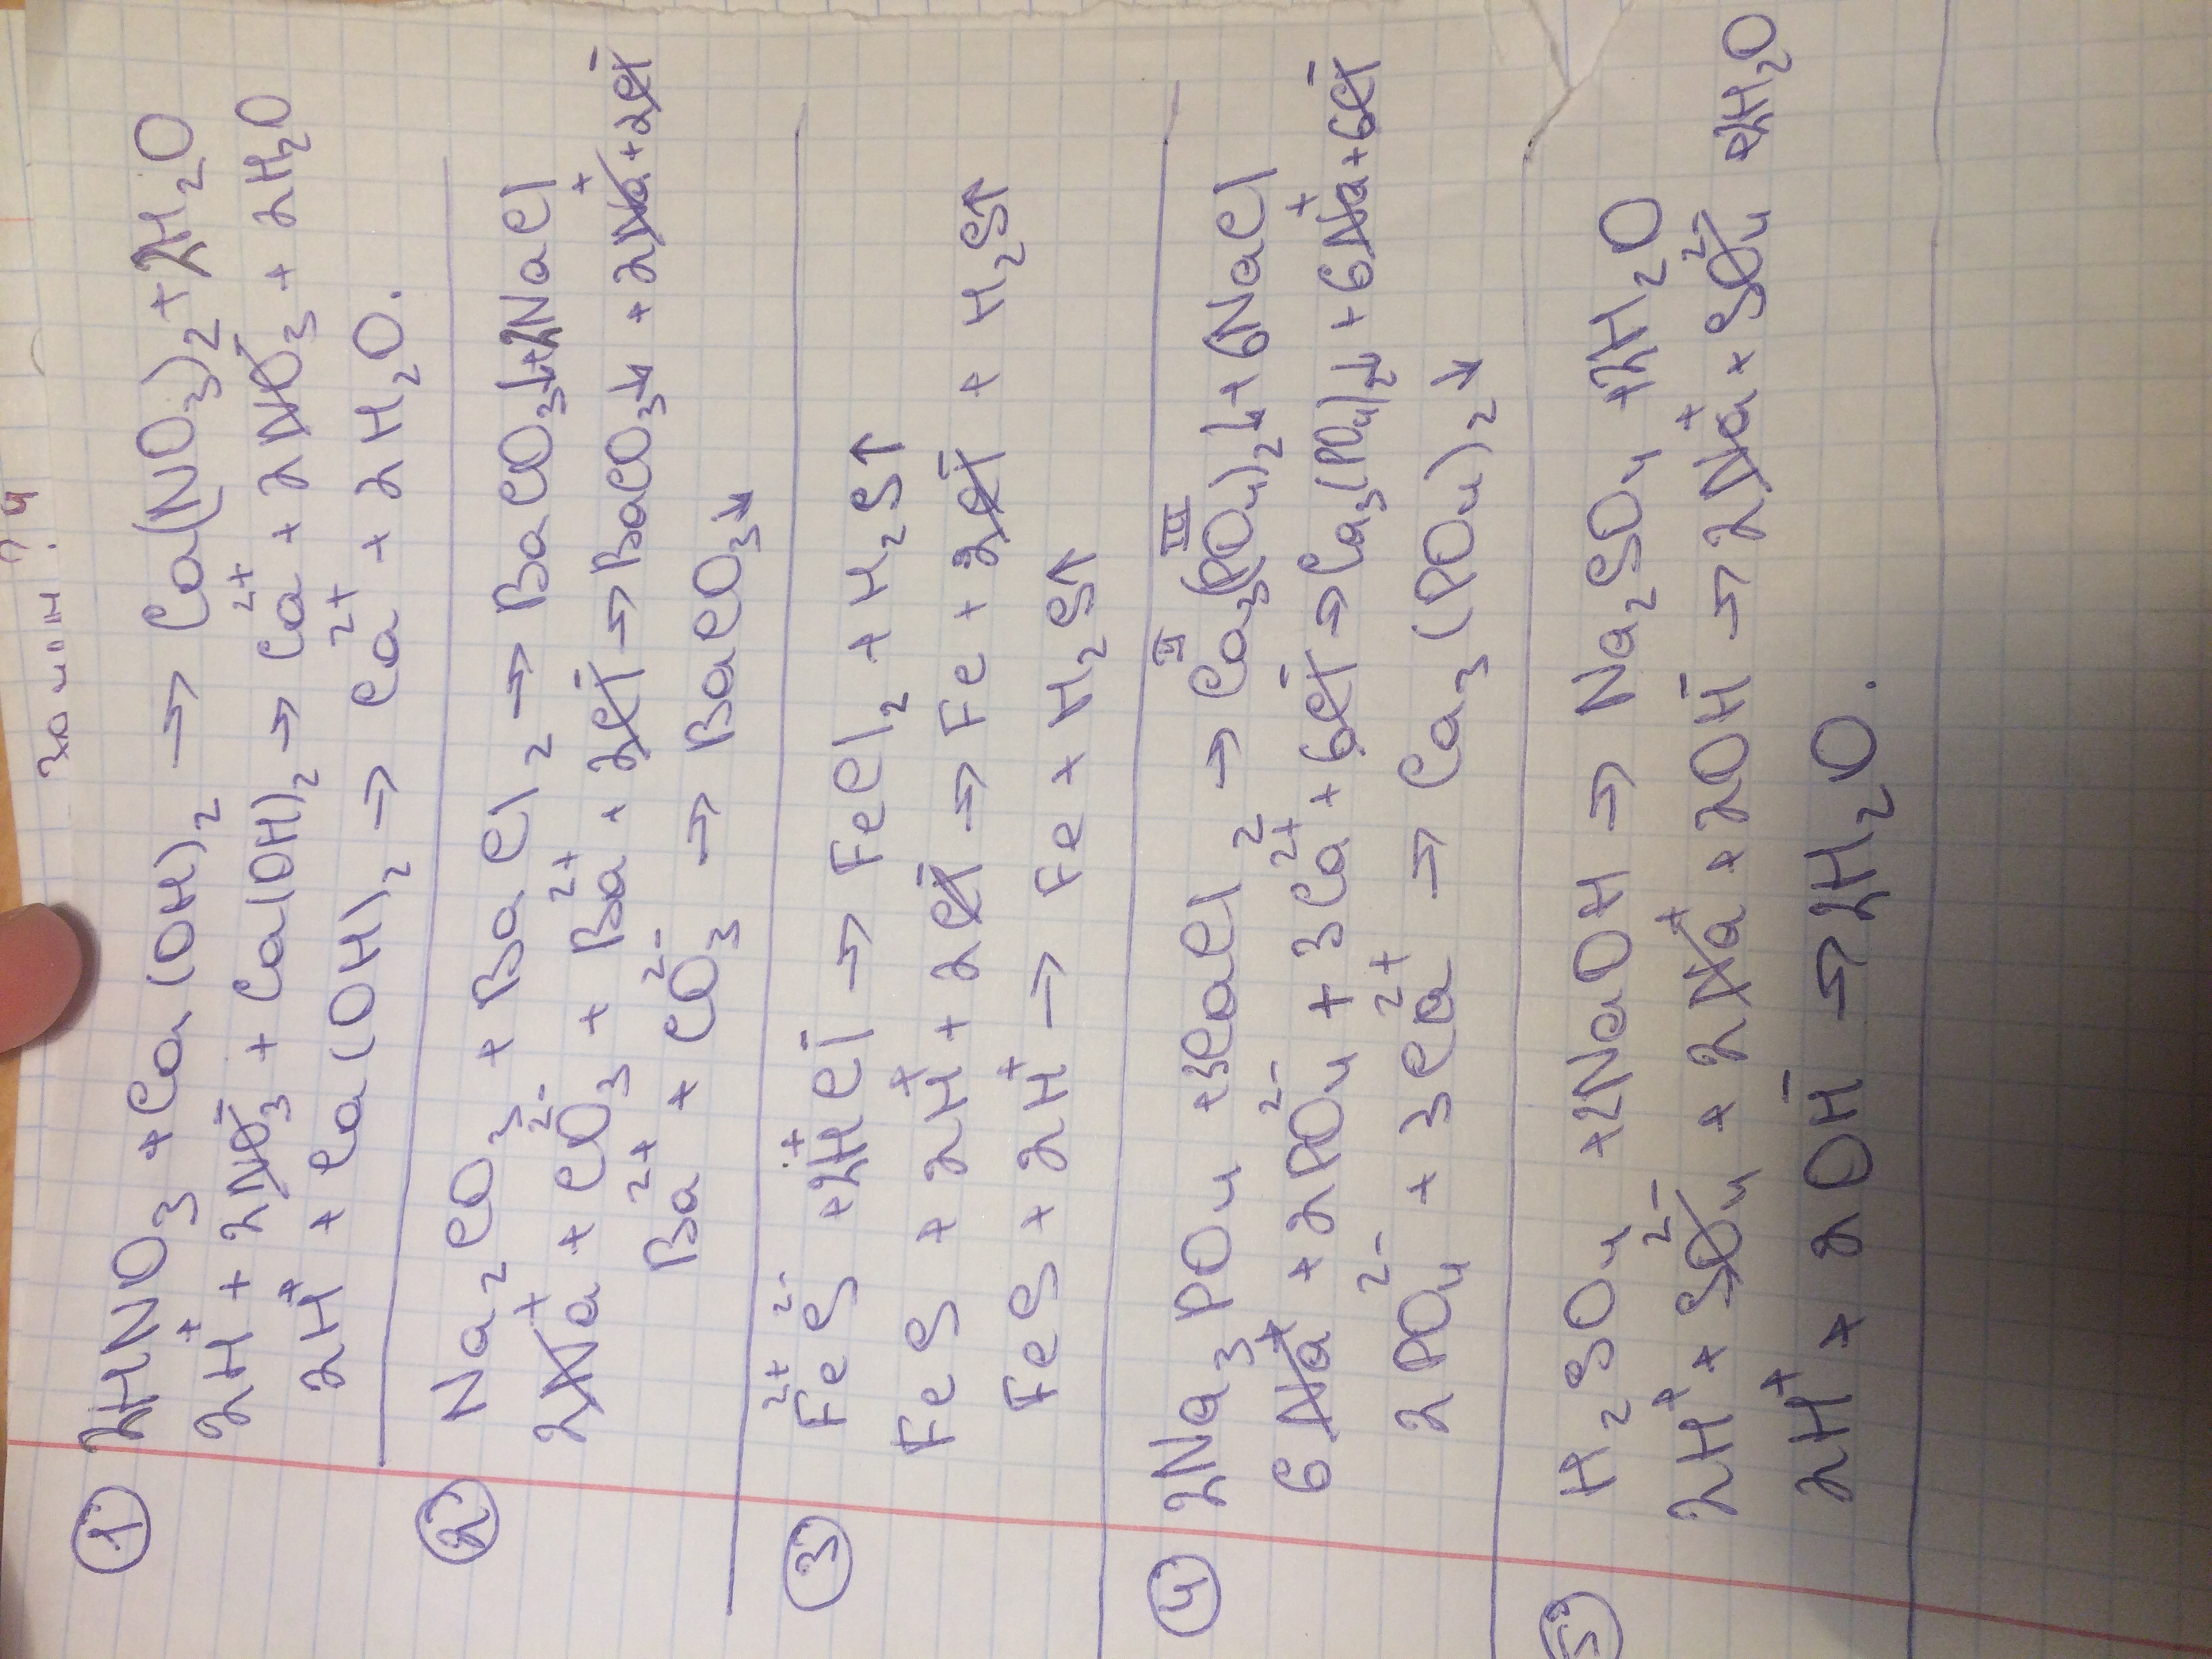 ①
2HNO₃ + Ca(OH)₂ → Ca(NO₃)₂ + 2H₂O
2H⁺ + 2NO₃⁻ + Ca(OH)₂ → Ca²⁺ + 2NO₃ + 2H₂O
2H⁺ + Ca(OH)₂ → Ca²⁺ + 2H₂O.
②
Na₂CO₃ + BaCl₂ → BaCO₃↓ + 2NaCl
2Na⁺ + CO₃²⁻ + Ba²⁺ + 2Cl⁻ → BaCO₃↓ + 2Na⁺ + 2Cl⁻
Ba²⁺ + CO₃²⁻ → BaCO₃↓
③
Fe²⁺S²⁻ + 2H⁺Cl⁻ → FeCl₂ + H₂S↑
FeS + 2H⁺ + 2Cl⁻ → Fe + 2Cl⁻ + H₂S↑
FeS + 2H⁺ → Fe + H₂S↑
④
2Na₃PO₄ + 3CaCl₂ → Ca₃(PO₄)₂↓ + 6NaCl
6Na⁺ + 2PO₄²⁻ + 3Ca²⁺ + 6Cl⁻ → Ca₃(PO₄)₂↓ + 6Na⁺ + 6Cl⁻
2PO₄²⁻ + 3Ca²⁺ → Ca₃(PO₄)₂↓
⑤
H₂SO₄ + 2NaOH → Na₂SO₄ + 2H₂O
2H⁺ + SO₄²⁻ + 2Na⁺ + 2OH⁻ → 2Na⁺ + SO₄²⁻ + 2H₂O
2H⁺ + 2OH⁻ → 2H₂O.